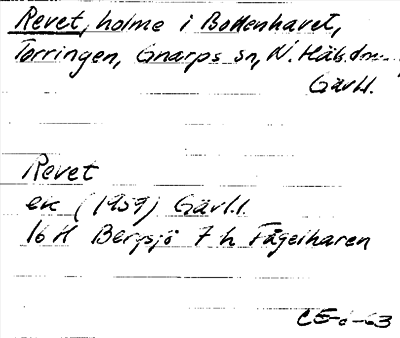 Revet, holme i Bottenhavet,
Torringen, Gnarps sn, N. Häls.
Gävl.l.
Revet
ek (1959) Gävl.l.
16 H Bergsjö 7 h Fågelharen